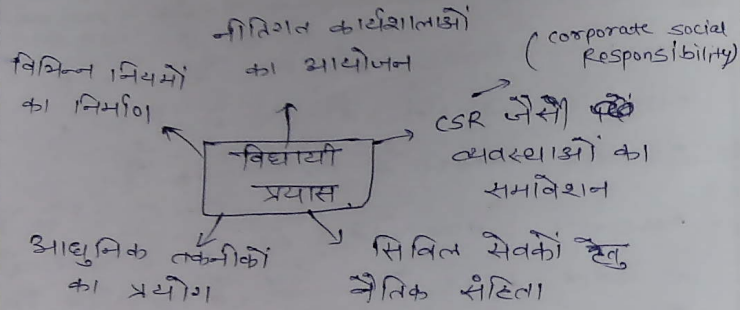 नीतिगत कार्यशालाओं
का आयोजन
(corporate social
Responsibility)
विभिन्न नियमों
का निर्माण
CSR जैसी
व्यवस्थाओं का
समावेशन
विधायी
प्रयास
आधुनिक तकनीकों
का प्रयोग
सिविल सेवकों हेतु
नैतिक संहिता